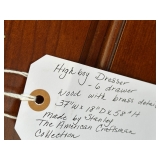 Highboy Dresser
- 6 drawer
wood with brass detail
37"W x 18"D x 50"H
made by Stanley
The American Craftsman
Collection